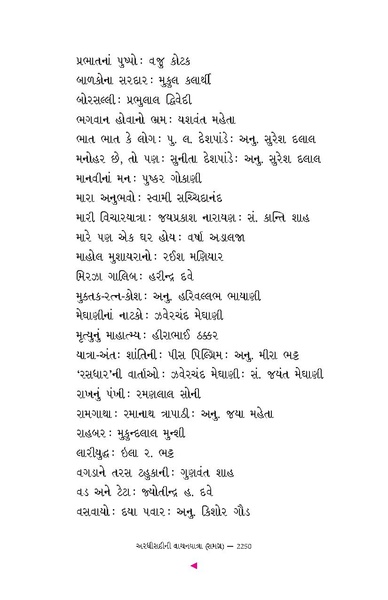 પ્રભાતનાં પુષ્પો: વજુ કોટક
બાળકોના સરદાર: મુકુલ કલાર્થી
બોરસલ્લી: પ્રભુલાલ દ્વિવેદી
ભગવાન હોવાનો ભ્રમ: યશવંત મહેતા
ભાત ભાત કે લોગ: પુ. લ. દેશપાંડે: અનુ. સુરેશ દલાલ
મનોહર છે, તો પણ: સુનીતા દેશપાંડે: અનુ. સુરેશ દલાલ
માનવીનાં મન: પુષ્કર ગોકાણી
મારા અનુભવો: સ્વામી સચ્ચિદાનંદ
મારી વિચારયાત્રા: જયપ્રકાશ નારાયણ: સં. કાન્તિ શાહ
મારે પણ એક ઘર હોય: વર્ષા અડાલજા
માહોલ મુશાયરાનો: રઈશ મણિયાર
મિરઝા ગાલિબ: હરીન્દ્ર દવે
મુક્તક-રત્ન-કોશ: અનુ. હરિવલ્લભ ભાયાણી
મેઘાણીનાં નાટકો: ઝવેરચંદ મેઘાણી
મૃત્યુનું માહાત્મ્ય: હીરાભાઈ ઠક્કર
યાત્રા-અંત: શાંતિની: પીસ પિલ્ગ્રિમ: અનુ. મીરા ભટ્ટ
‘રસધાર’ની વાર્તાઓ: ઝવેરચંદ મેઘાણી: સં. જયંત મેઘાણી
રાખનું પંખી: રમણલાલ સોની
રામગાથા: રમાનાથ ત્રાપાઠી: અનુ. જયા મહેતા
રાહબર: મુકુન્દલાલ મુન્શી
લારીયુદ્ધ: ઇલા ર. ભટ્ટ
વગડાને તરસ ટહુકાની: ગુણવંત શાહ
વડ અને ટેટા: જ્યોતીન્દ્ર હ. દવે
વસવાયો: દયા પવાર: અનુ. કિશોર ગૌડ
અરધીસદીની વાચનયાત્રા (સમગ્ર) — 2250